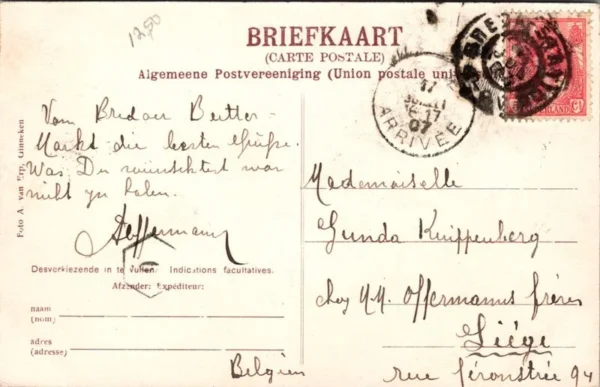 12,50
BRIEFKAART
(CARTE POSTALE)
Algemeene Postvereeniging (Union postale uni
BREDA
NEDERLAND
17
JUILLET
16-17
07
ARRIVÉE
Vom Bredaer Butter-
Markt die besten Grüße.
Was Du wünschtest war
nicht zu haben.
Offermann
Foto A. van Erp, Ginneken
Desverkiezende in te vullen. Indications facultatives.
Afzender: Expéditeur:
naam
(nom)
adres
(adresse)
Mademoiselle
Gunda Knippenberg
chez M.M. Offermanns frères
Liége
rue Féronstrée 94
Belgien